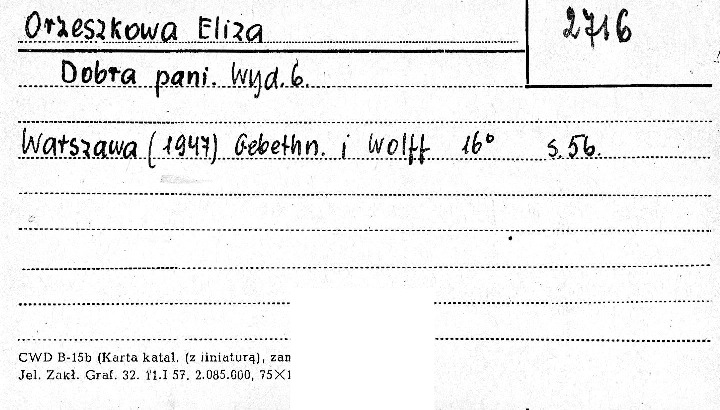 Orzeszkowa Eliza
2716
Dobra pani. Wyd. 6.
Warszawa (1947) Gebethn. i Wolff 16° s. 56.
CWD B-15b (Karta katal. (z liniaturą), zam
Jel. Zakł. Graf. 32. 11.I 57. 2.085.000, 75×1